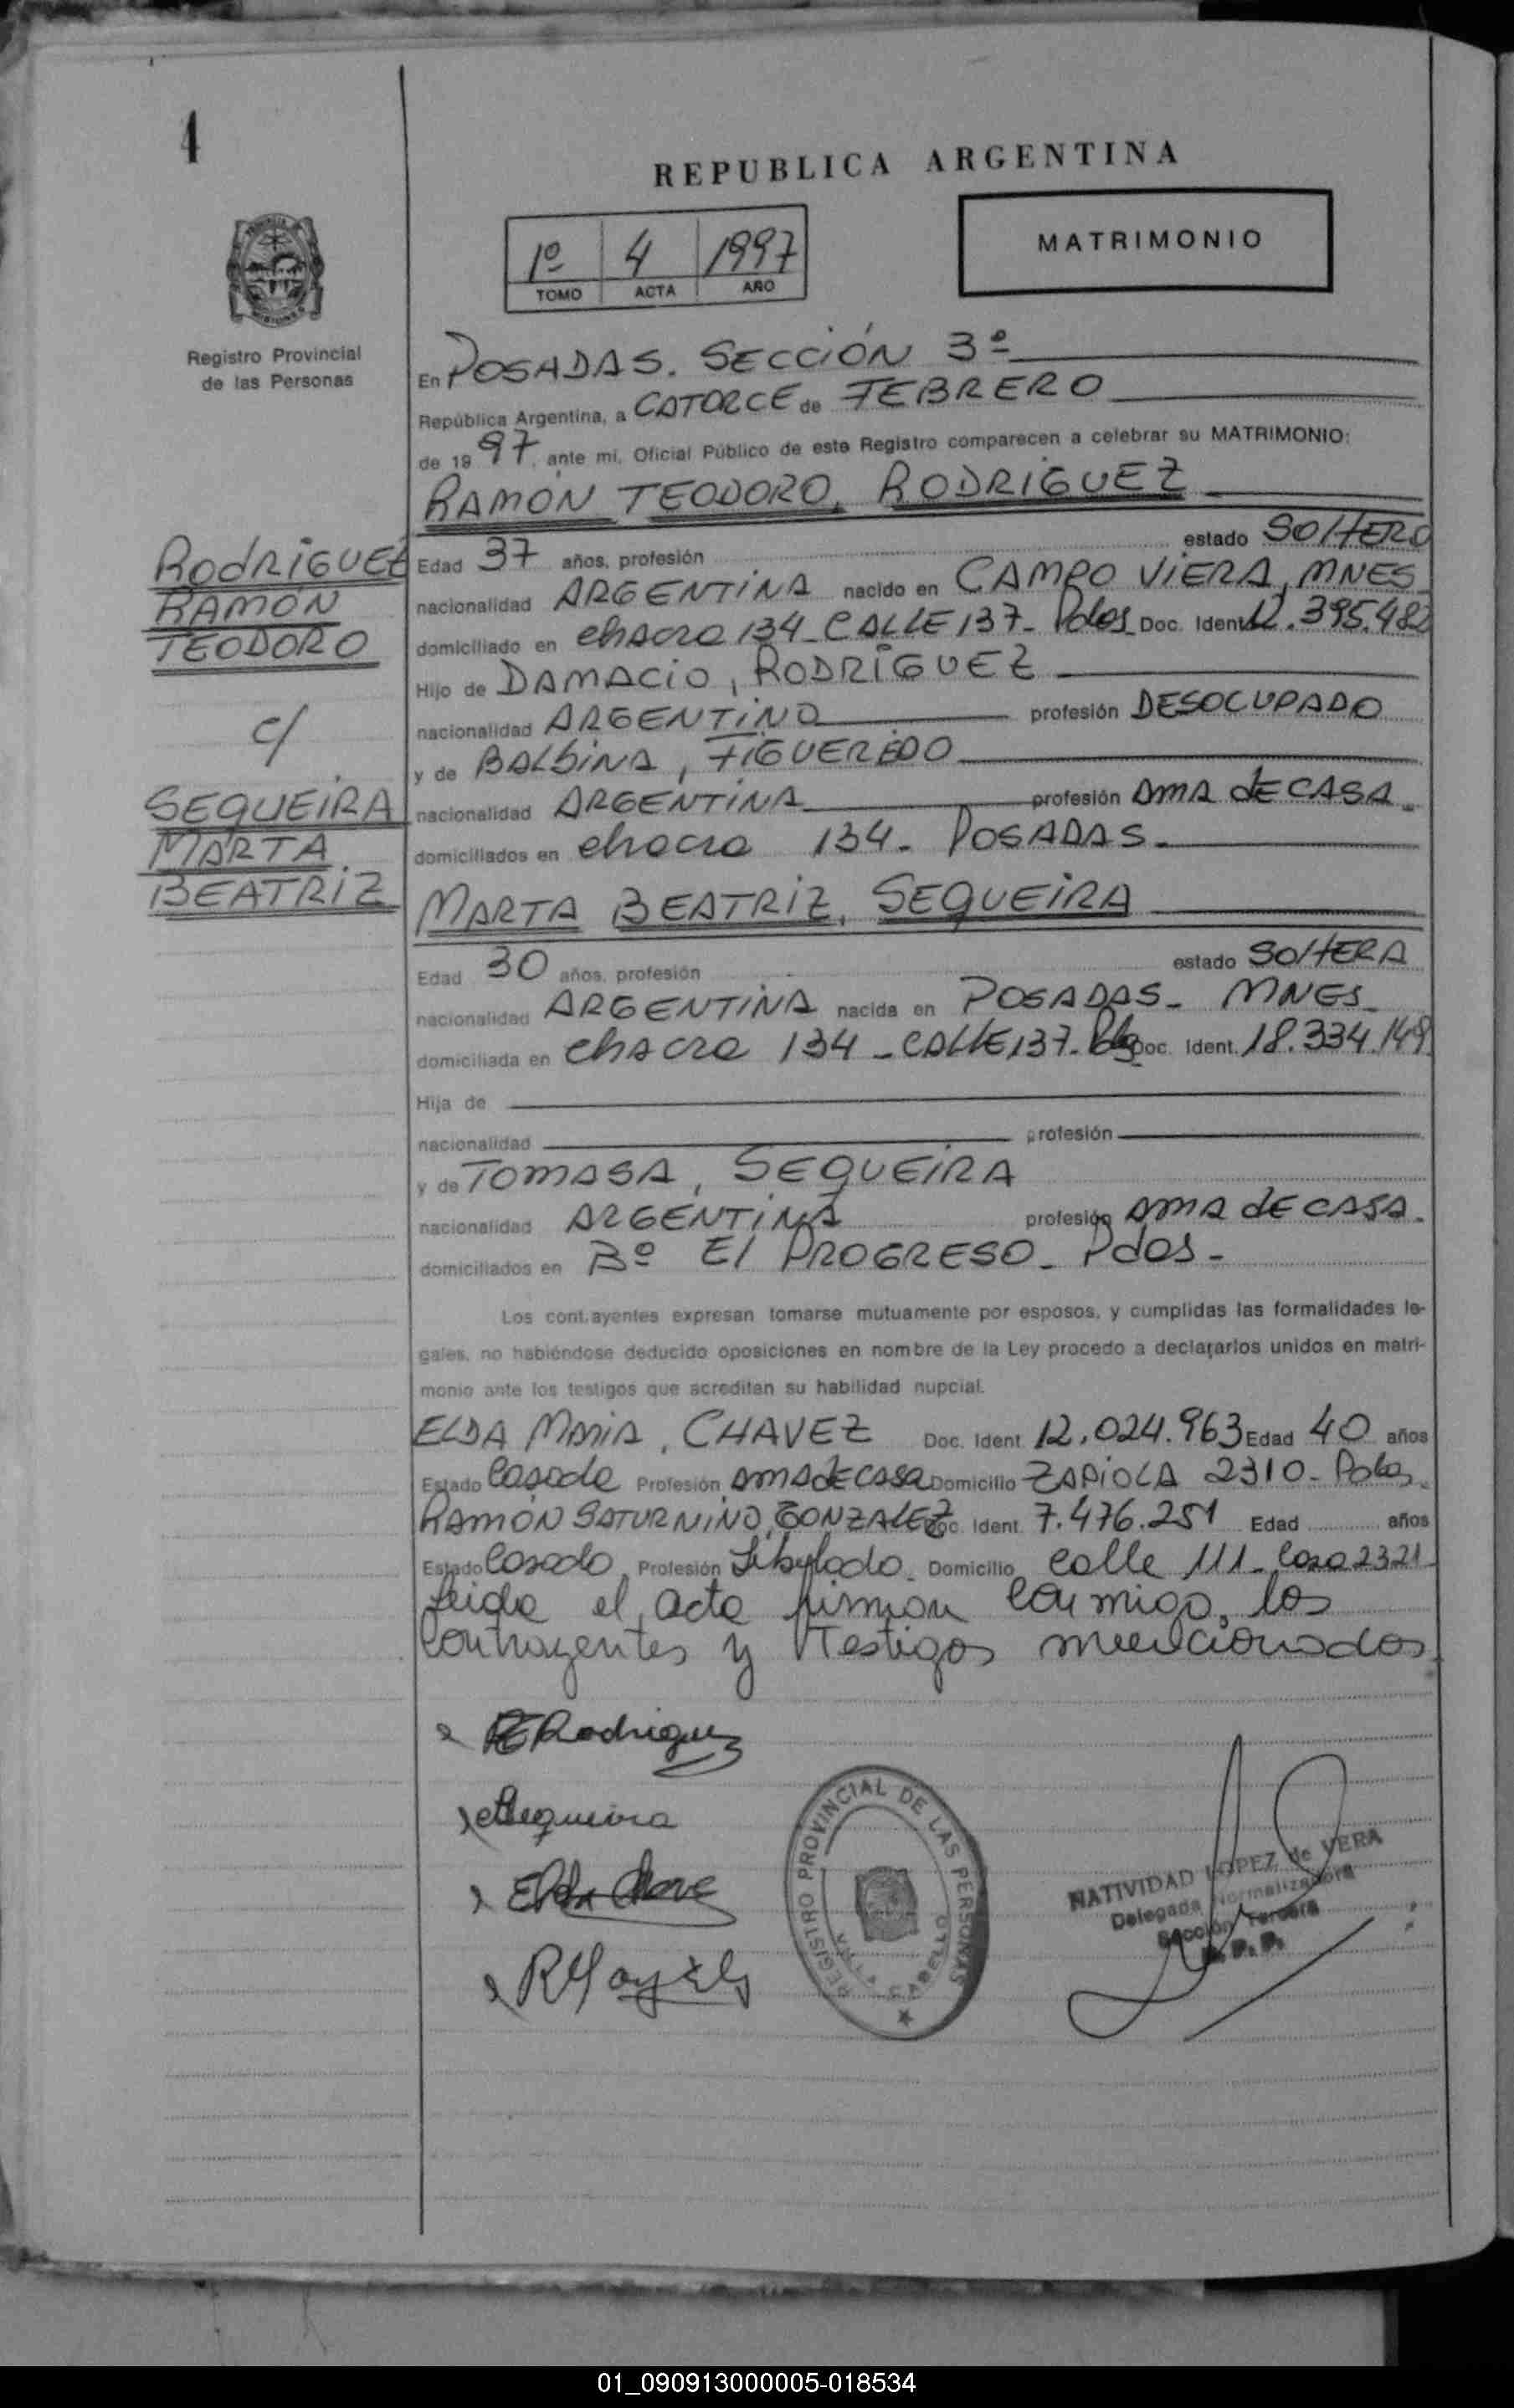 4
REPUBLICA ARGENTINA
1º 4 1997
TOMO ACTA AÑO
MATRIMONIO
Registro Provincial
de las Personas
En POSADAS. SECCIÓN 3º
República Argentina, a CATORCE de FEBRERO
de 19 97, ante mí, Oficial Público de este Registro comparecen a celebrar su MATRIMONIO:
RAMÓN TEODORO, RODRIGUEZ
RODRIGUEZ
RAMÓN
TEODORO
c/
SEQUEIRA
MARTA
BEATRIZ
Edad 37 años, profesión estado SOLTERO
nacionalidad ARGENTINA nacido en CAMPO VIERA, MNES
domiciliado en chacra 134 - CALLE 137 - Pdas Doc. Ident. 12.395.482
Hijo de DAMACIO, RODRIGUEZ
nacionalidad ARGENTINO profesión DESOCUPADO
y de BALBINA, FIGUEREDO
nacionalidad ARGENTINA profesión AMA de CASA
domiciliados en chacra 134 - POSADAS.
MARTA BEATRIZ, SEQUEIRA
Edad 30 años, profesión estado SOLTERA
nacionalidad ARGENTINA nacida en POSADAS - MNES
domiciliada en chacra 134 - CALLE 137 - Pdas Doc. Ident. 18.334.149
Hija de
nacionalidad profesión
y de TOMASA, SEQUEIRA
nacionalidad ARGENTINA profesión AMA de CASA
domiciliados en Bº El PROGRESO - Pdas -
Los contrayentes expresan tomarse mutuamente por esposos, y cumplidas las formalidades le-
gales, no habiéndose deducido oposiciones en nombre de la Ley procedo a declararlos unidos en matri-
monio ante los testigos que acreditan su habilidad nupcial.
ELDA MARIA, CHAVEZ Doc. Ident. 12.024.963 Edad 40 años
Estado Casada Profesión AMA de CASA Domicilio ZAPIOLA 2310 - Pdas
RAMÓN SATURNINO, GONZALEZ Doc. Ident. 7.476.251 Edad años
Estado Casado Profesión Jubilado - Domicilio calle 111 - Casa 2321
leida el acta firman conmigo, los
contrayentes y Testigos mencionados
Rodriguez
Sequeira
Elda Chave
REGISTRO PROVINCIAL DE LAS PERSONAS
NATIVIDAD LOPEZ de VERA
Delegada Normalizadora
Sección Tercera
R. P. P.
01_090913000005-018534